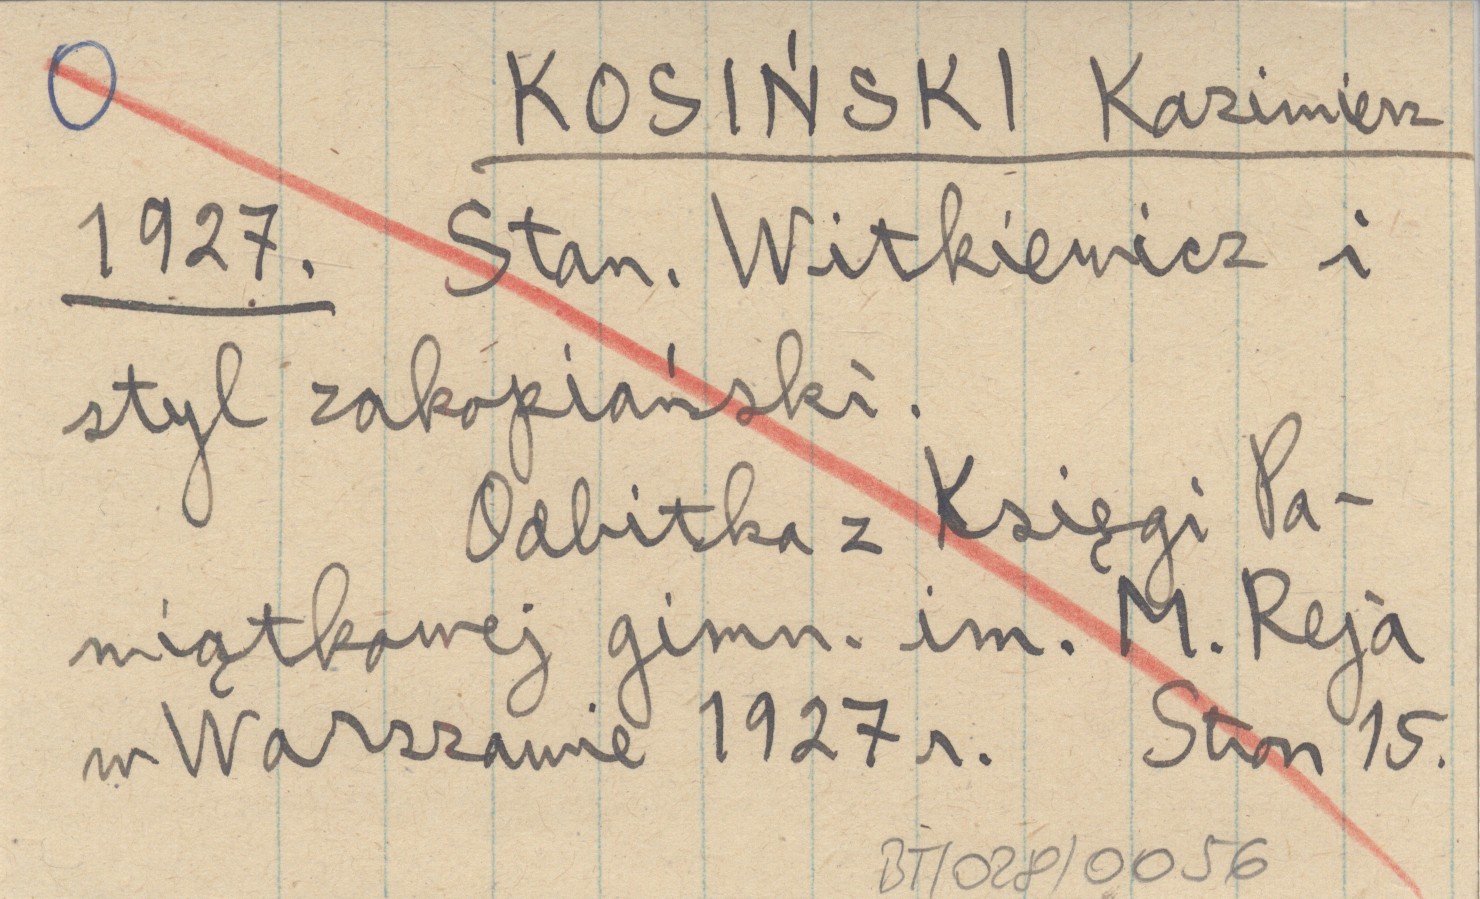 O KOSIŃSKI Kazimierz
1927. Stan. Witkiewicz i
styl zakopiański.
Odbitka z Księgi Pa-
miątkowej gimn. im. M. Reja
w Warszawie 1927 r. Stron 15.
BT/028/0056